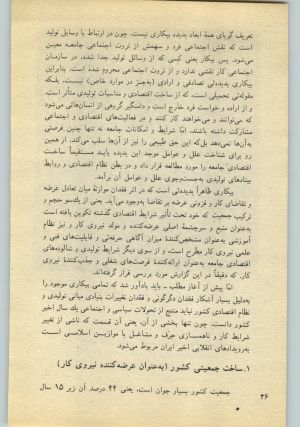 تعریف گویای همهٔ ابعاد پدیده بیکاری نیست، چون در ارتباط با وسایل تولید
است که نقش اجتماعی فرد و سهمش از ثروت اجتماعی جامعه معین
می‌شود. پس بیکار یعنی کسی که از وسائل تولید جدا شده، در سازمان
اجتماعی کار نقشی ندارد و از ثروت اجتماعی محروم شده است، بنابراین
بیکاری پدیده‌یی تصادفی و ارادی (به‌جز در موارد خاص) نیست، بلکه
مقوله‌ای تحمیلی است، که از ساخت اقتصادی و مناسبات تولیدی متأثر است،
و از اراده و خواست فرد خارج است و دامنگیر گروهی از انسان‌هائی می‌شود
که می‌توانند و می‌خواهند کار کنند و در فعالیت‌های اقتصادی و اجتماعی
مشارکت داشته باشند. امّا شرایط و امکانات جامعه نه تنها چنین فرصتی
به‌آن‌ها نمی‌دهد بل‌که این حق طبیعی را نیز از آن‌ها سلب می‌کند. از همین
رو برای شناخت علل و عوامل موجد این پدیده باید مستقیماً ساخت
اقتصادی جامعه را مورد مطالعه قرار داد و در بطن نظام اقتصادی و روابط
بنیادهای تولیدی به‌جست‌وجوی علل و عوامل آن برآمد.
بیکاری ظاهراً پدیده‌ئی است که در اثر فقدان موازنهٔ میان تعادل عرضه
و تقاضای کار و فزونی عرضه بر تقاضا به‌وجود می‌آید. یعنی از یک‌سو حجم و
ترکیب جمعیت که خود تحت تأثیر شرایط اقتصادی گذشته تکوین یافته است
به‌عنوان منبع و سرچشمهٔ اصلی عرضه‌کننده و مولد نیروی کار و نظام
آموزشی به‌عنوان مشخص‌کنندهٔ میزان آگاهی حرفه‌ئی و قابلیت‌های فنی و
علمی نیروی کار مطرح است، و از سوی دیگر شرایط تولیدی و شالوده‌های
اقتصادی جامعه به‌عنوان ارائه‌کنندهٔ فرصت‌های شغلی و جذب‌کنندهٔ نیروی
کار، که دقیقاً در این گزارش مورد بررسی قرار گرفته‌اند.
امّا پیش از آغاز مطلب ـ باید یادآور شد که تمامی بیکاری موجود را
به‌دلیل بسیار آشکار فقدان دگرگونی و فقدان تغییرات بنیادی مبانی تولیدی و
نظام اقتصادی کشور نباید منتج از تحولات سیاسی و اجتماعی یك سال اخیر
کشور دانست. چون تنها بخشی از آن، یعنی آن قسمت که ناشی از تغییر
شرایط کار و ناهمسازی حرف و مشاغل با موازین اسلامی است
به‌رویدادهای انقلابی اخیر ایران مربوط می‌شود.
۱. ساخت جمعیتی کشور (به‌عنوان عرضه‌کننده نیروی کار)
جمعیت کشور بسیار جوان است، یعنی ۴۴ درصد آن زیر ۱۵ سال
۳۶